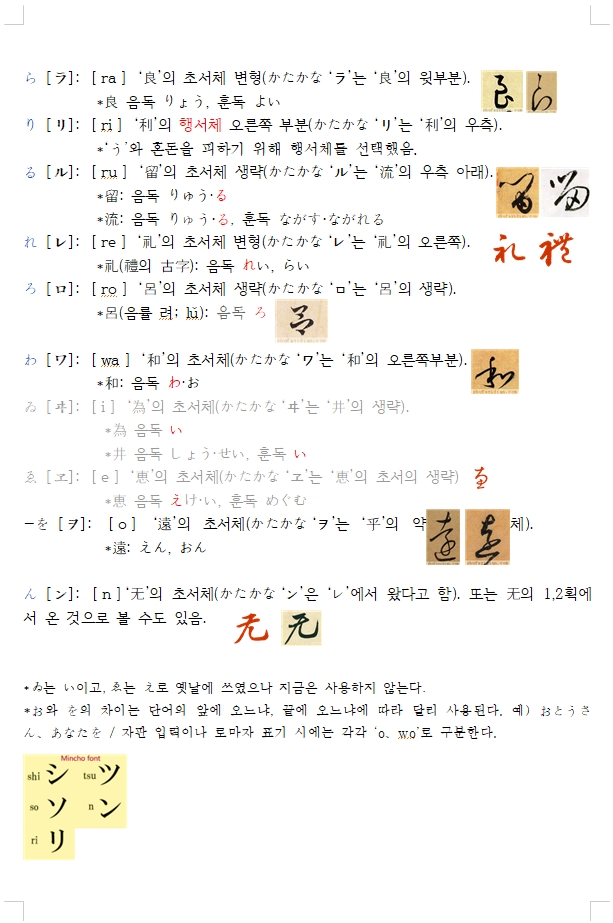 ら [ラ]: [ ra ] ‘良’의 초서체 변형(かたかな ‘ラ’는 ‘良’의 윗부분).
*良 음독 りょう, 훈독 よい
り [リ]: [ ri ] ‘利’의 행서체 오른쪽 부분(かたかな ‘リ’는 ‘利’의 우측).
*‘う’와 혼돈을 피하기 위해 행서체를 선택했음.
る [ル]: [ ru ] ‘留’의 초서체 생략(かたかな ‘ル’는 ‘流’의 우측 아래).
*留: 음독 りゅう·る
*流: 음독 りゅう·る, 훈독 ながす·ながれる
れ [レ]: [ re ] ‘礼’의 초서체 변형(かたかな ‘レ’는 ‘礼’의 오른쪽).
*礼(禮의 古字): 음독 れい, らい
礼 禮
ろ [ロ]: [ ro ] ‘呂’의 초서체 생략(かたかな ‘ロ’는 ‘呂’의 생략).
*呂(음률 려; lǚ): 음독 ろ
わ [ワ]: [ wa ] ‘和’의 초서체(かたかな ‘ワ’는 ‘和’의 오른쪽부분).
*和: 음독 わ·お
和
ゐ [ヰ]: [ i ] ‘為’의 초서체(かたかな ‘ヰ’는 ‘井’의 생략).
*為 음독 い
*井 음독 しょう·せい, 훈독 い
ゑ [ヱ]: [ e ] ‘恵’의 초서체(かたかな ‘ヱ’는 ‘恵’의 초서의 생략)
*恵 음독 えけ·い, 훈독 めぐむ
-を [ヲ]: [ o ] ‘遠’의 초서체(かたかな ‘ヲ’는 ‘平’의 약 체).
*遠: えん, おん
ん [ン]: [ n ] ‘无’의 초서체(かたかな ‘ン’은 ‘レ’에서 왔다고 함). 또는 无의 1,2획에
서 온 것으로 볼 수도 있음.
无 无
*ゐ는 い이고, ゑ는 え로 옛날에 쓰였으나 지금은 사용하지 않는다.
*お와 を의 차이는 단어의 앞에 오느냐, 끝에 오느냐에 따라 달리 사용된다. 예) おとうさ
ん、あなたを / 자판 입력이나 로마자 표기 시에는 각각 ‘o、wo’로 구분한다.
Mincho font
shi シ tsu ツ
so ソ n ン
ri リ